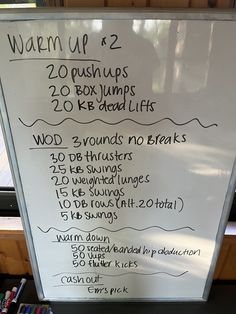 Warm up x2
20 push ups
20 Box Jumps
20 KB dead Lifts
WOD 3 rounds no Breaks
30 DB thrusters
25 KB swings
20 weighted lunges
15 KB swings
10 DB rows (Alt. 20 total)
5 KB swings
warm down
50 seated/banded hip abduction
50 Vups
50 flutter kicks
cash out
Em's pick